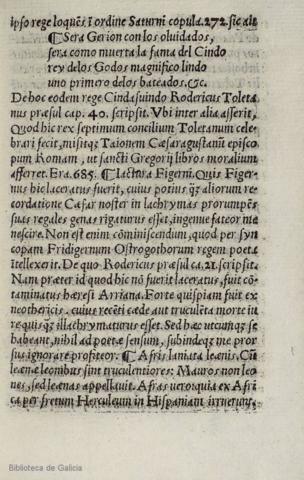 ipso rege loquẽs ĩ ordine Saturni copula.272. sic ait
¶ Sera Gerion con los oluidados,
sera como muerta la fama del Cindo
rey delos Godos magnifico lindo
uno primero delos bateados.&c.
De hoc eodem rege Cindasuindo Rodericus Toleta
nus præsul cap. 40. scripsit. Vbi inter alia asserit,
Quod hic rex septimum concilium Toletanum cele
brari fecit, misitq; Taionem Cæsaraugustanũ episco
pum Romam, ut sancti Gregorij libros moralium
afferret. Era.685. ¶ Lachryma Figerni. Quis Figer-
nus hic laceratus fuerit, cuius potius q̃; aliorum re
cordatione Cæsar noster in lachrymas prorumpẽs
suas regales genas rigaturus esset, ingenue fateor me
nescire. Non est enim cõminiscendum, quod per syn
copam Fridigernum Ostrogothorum regem poeta
ĩtellexerit. De quo Rodericus præsul ca.21. scripsit.
Nam præter id quod hic nõ fuerit laceratus, fuit cõ-
taminatus hæresi Arriana. Forte quispiam fuit ex
neothericis, cuius recẽti cæde aut truculẽta morte iu
re quis q; illachrymaturus esset. Sed hæc utcunq; se
habeant, nihil ad poetæ sensum, subindeq; me pror
sus ignorare profiteor. ¶ Afris laniata leænis. Cũ
leænæ leonibus sint truculentiores: Mauros non leo
nes, sed leænas appellauit. Afras uero quia ex Afri
ca per fretum Herculeum in Hispaniam irruerunt,
Biblioteca de Galicia